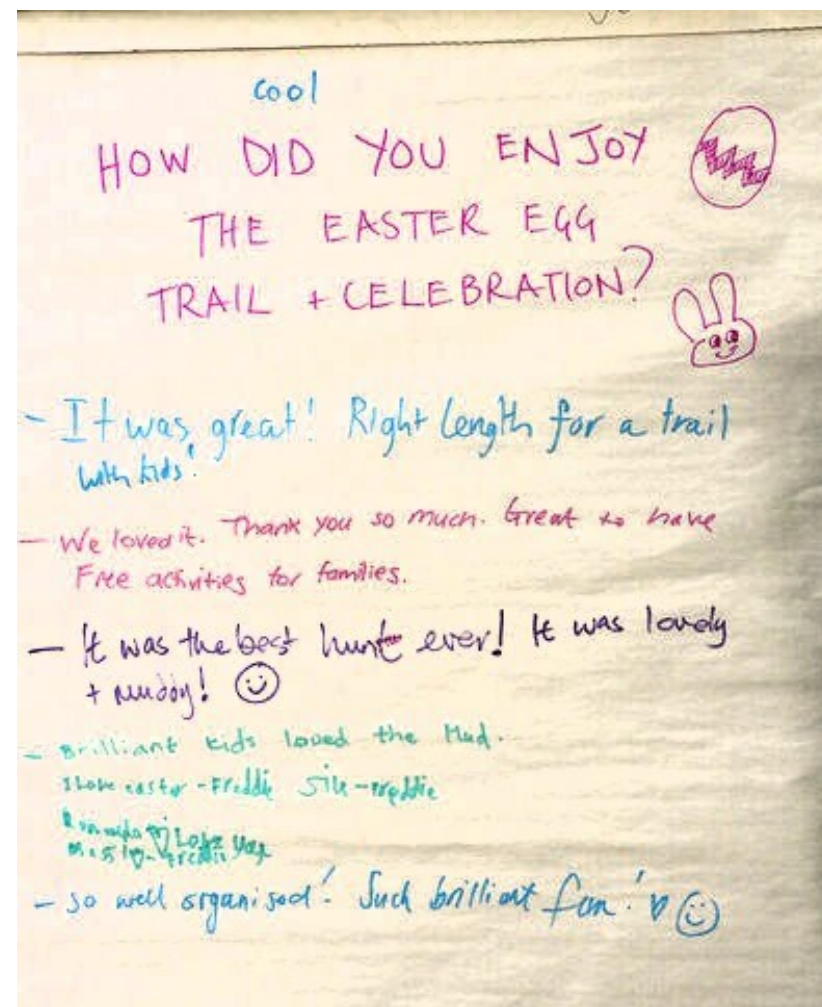 cool
HOW DID YOU ENJOY
THE EASTER EGG
TRAIL + CELEBRATION?
- It was great! Right length for a trail
with kids!
- We loved it. Thank you so much. Great to have
Free activities for families.
- It was the best hunt ever! It was lovely
+ muddy! ☺
- Brilliant kids loved the Mud.
I Love easter - Freddie - Freddie
Love you
- So well organised! Such brilliant fun! ♡ ☺